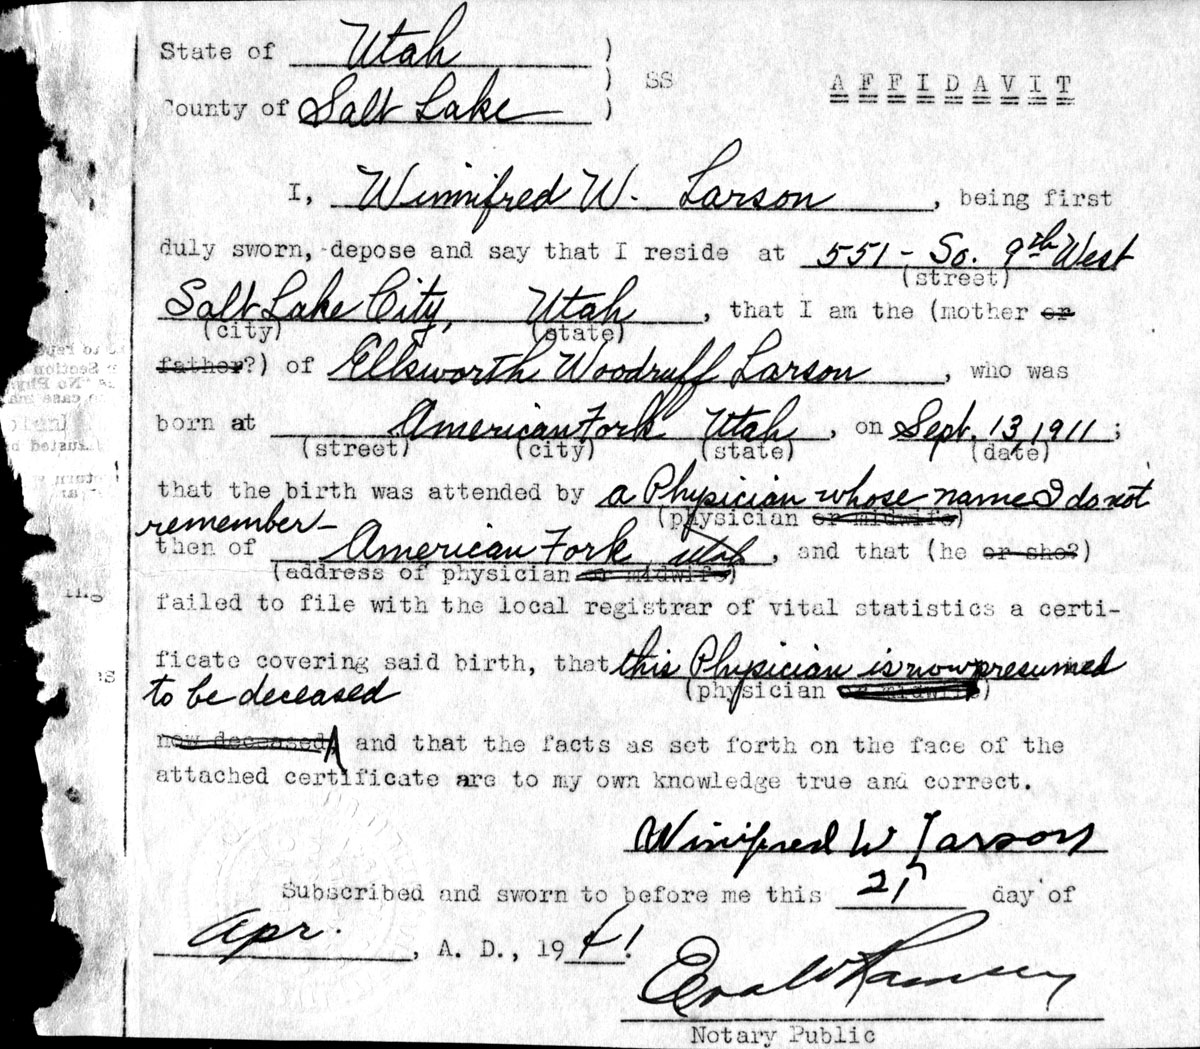 State of Utah )
) SS AFFIDAVIT
County of Salt Lake )
I, Winnifred W. Larson, being first
duly sworn, depose and say that I reside at 551 - So. 9th West
(street)
Salt Lake City, Utah, that I am the (mother or
(city) (state)
father?) of Ellsworth Woodruff Larson, who was
born at American Fork Utah, on Sept. 13, 1911;
(street) (city) (state) (date)
that the birth was attended by a Physician whose name I do not
remember - (physician or midwife)
then of American Fork Utah, and that (he or she?)
(address of physician or midwife)
failed to file with the local registrar of vital statistics a certi-
ficate covering said birth, that this Physician is now presumed
to be deceased (physician or midwife)
now deceased, and that the facts as set forth on the face of the
attached certificate are to my own knowledge true and correct.
Winifred W Larson
Subscribed and sworn to before me this day of
Apr., A. D., 1941
Notary Public